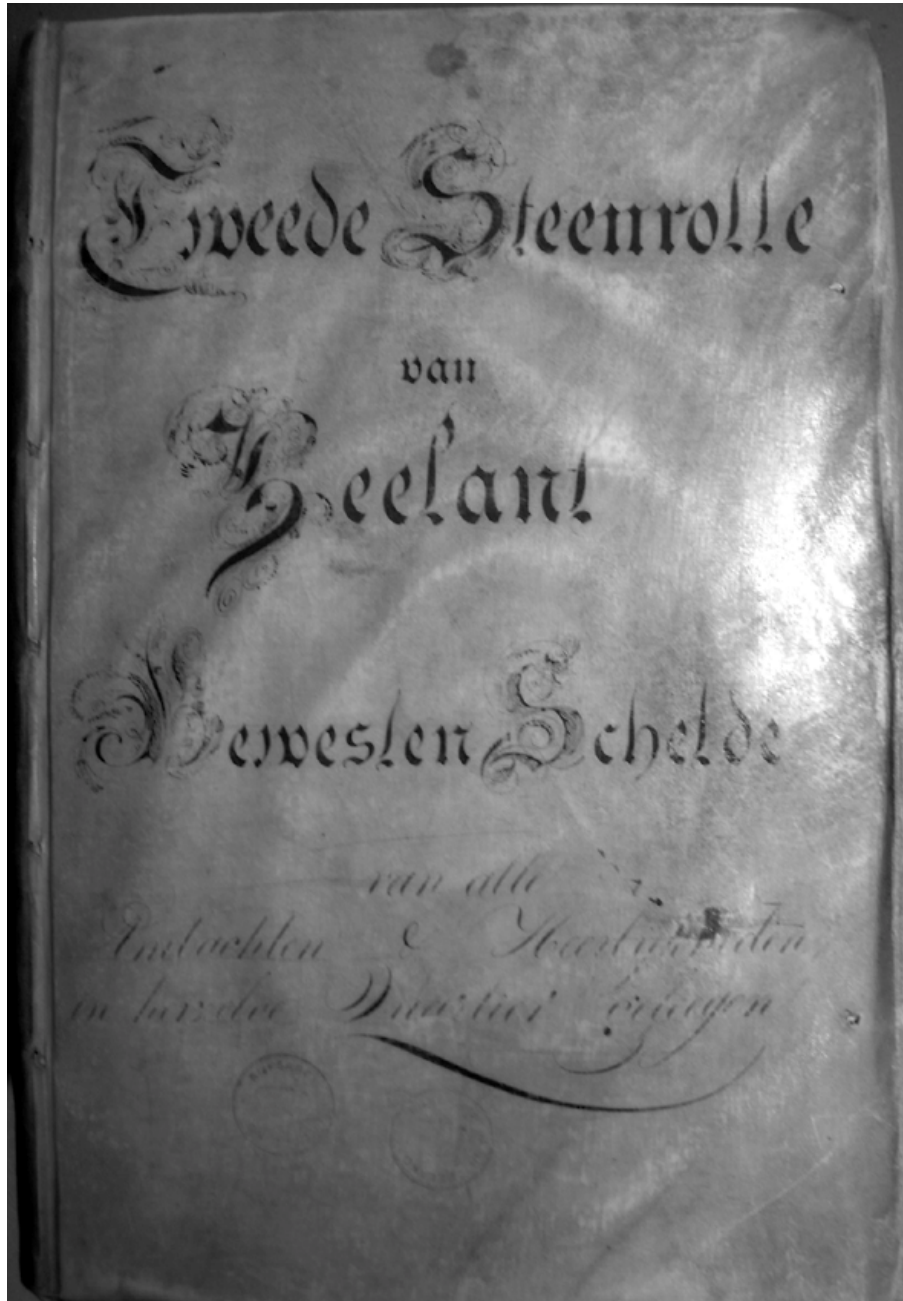 Tweede Steenrolle
van
Zeelant
Bewesten Schelde
van alle
Ambachten & Heerlijkheiten
in hetzelve Quartier gelegen